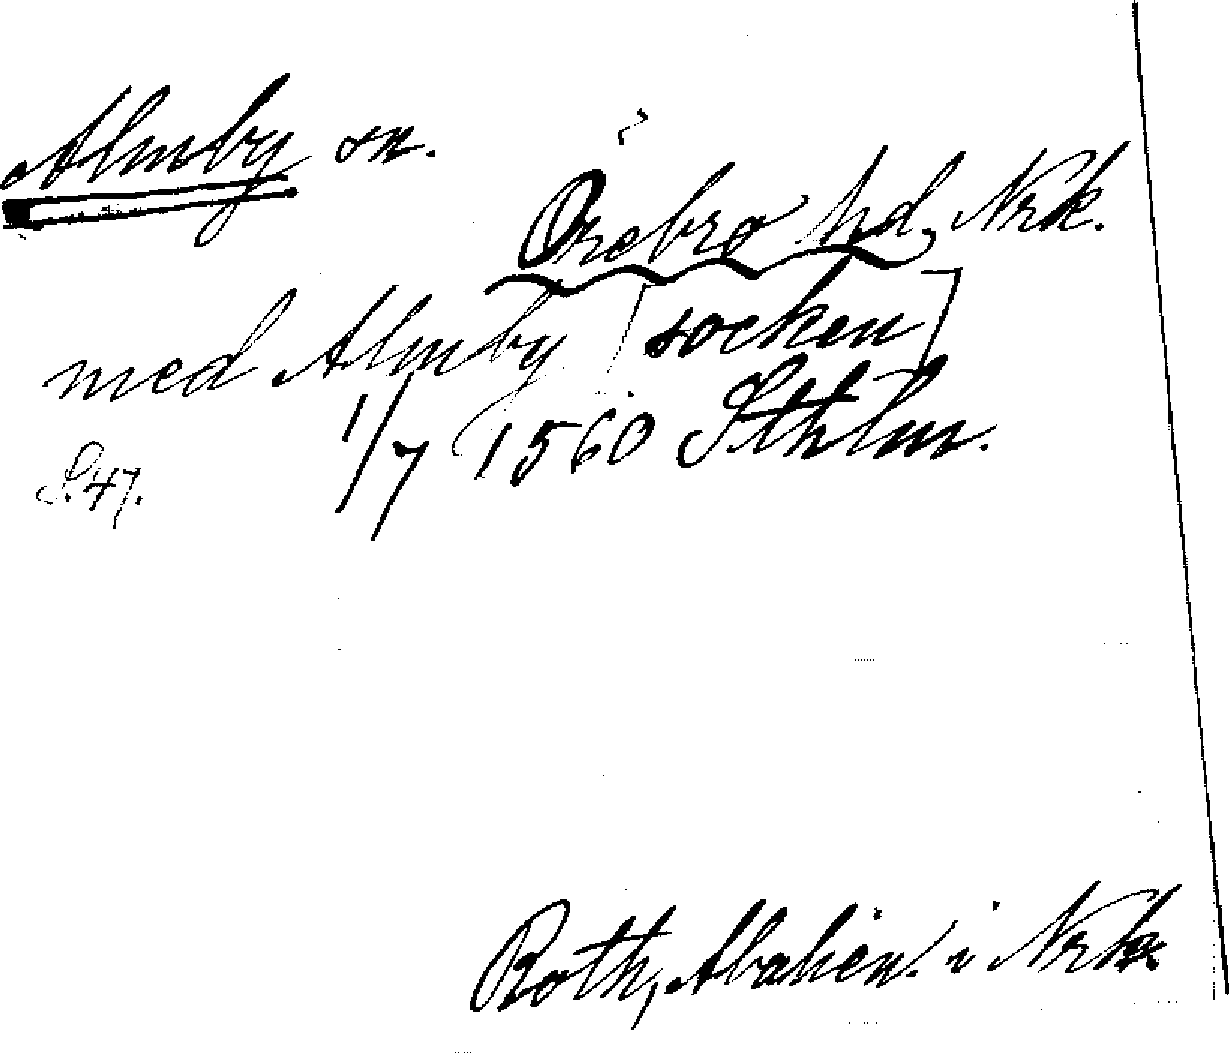 Almby sn.
Örebro hd, Nrk.
med Almby [socken]
1/7 1560 Sthlm.
S. 47.
Roth, Abalien. i Nrk.